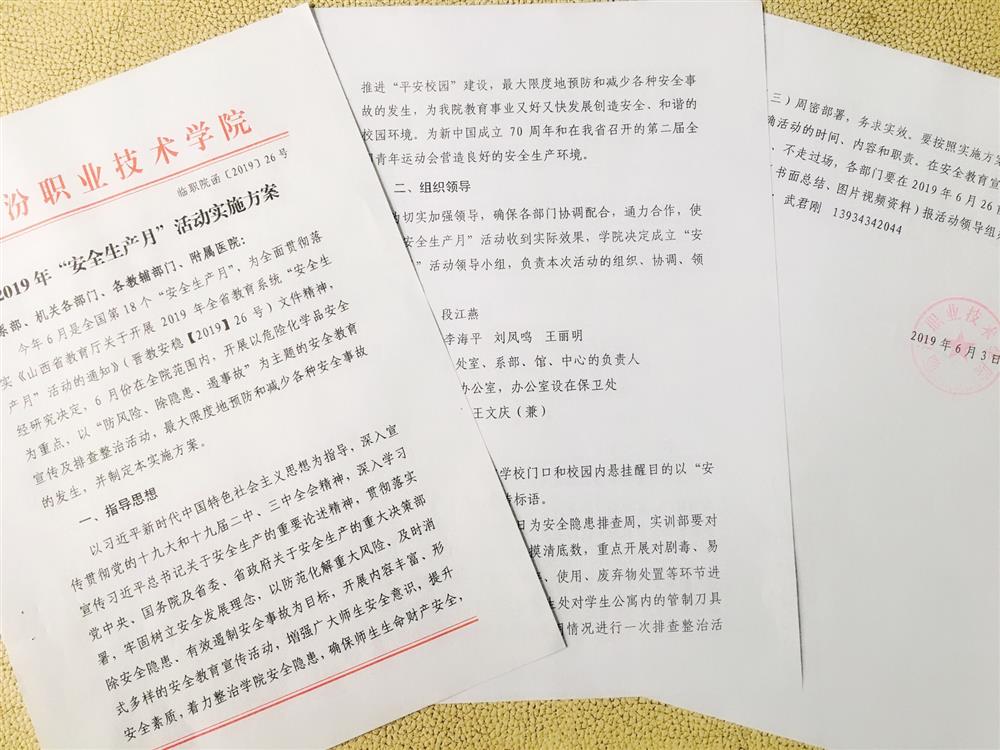 汾职业技术学院
临职院函〔2019〕26号
2019年“安全生产月”活动实施方案
系部、机关各部门、各教辅部门、附属医院:
今年6月是全国第18个“安全生产月”,为全面贯彻落
实《山西省教育厅关于开展2019年全省教育系统“安全生
产月”活动的通知》(晋教安稳【2019】26号)文件精神,
经研究决定,6月份在全院范围内,开展以危险化学品安全
为重点,以“防风险、除隐患、遏事故”为主题的安全教育
宣传及排查整治活动,最大限度地预防和减少各种安全事故
的发生,并制定本实施方案。
一、指导思想
以习近平新时代中国特色社会主义思想为指导,深入宣
传贯彻党的十九大和十九届二中、三中全会精神,深入学习
宣传习近平总书记关于安全生产的重要论述精神,贯彻落实
党中央、国务院及省委、省政府关于安全生产的重大决策部
署,牢固树立安全发展理念,以防范化解重大风险、及时消
除安全隐患、有效遏制安全事故为目标,开展内容丰富、形
式多样的安全教育宣传活动,增强广大师生安全意识,提升
安全素质,着力整治学院安全隐患,确保师生生命财产安全,
推进“平安校园”建设,最大限度地预防和减少各种安全事
故的发生,为我院教育事业又好又快发展创造安全、和谐的
校园环境。为新中国成立70周年和在我省召开的第二届全
青年运动会营造良好的安全生产环境。
二、组织领导
切实加强领导,确保各部门协调配合,通力合作,使
安全生产月”活动收到实际效果,学院决定成立“安
”活动领导小组,负责本次活动的组织、协调、领
段江燕
李海平 刘凤鸣 王丽明
处室、系部、馆、中心的负责人
办公室,办公室设在保卫处
王文庆(兼)
学校门口和校园内悬挂醒目的以“安
标语。
日为安全隐患排查周,实训部要对
摸清底数,重点开展对剧毒、易
、使用、废弃物处置等环节进
处对学生公寓内的管制刀具
情况进行一次排查整治活
三)周密部署,务求实效。要按照实施方案
确活动的时间、内容和职责。在安全教育宣
、不走过场,各部门要在2019年6月26
书面总结,图片视频资料)报活动领导组
武君刚 13934342044
职业技术
2019年6月3日